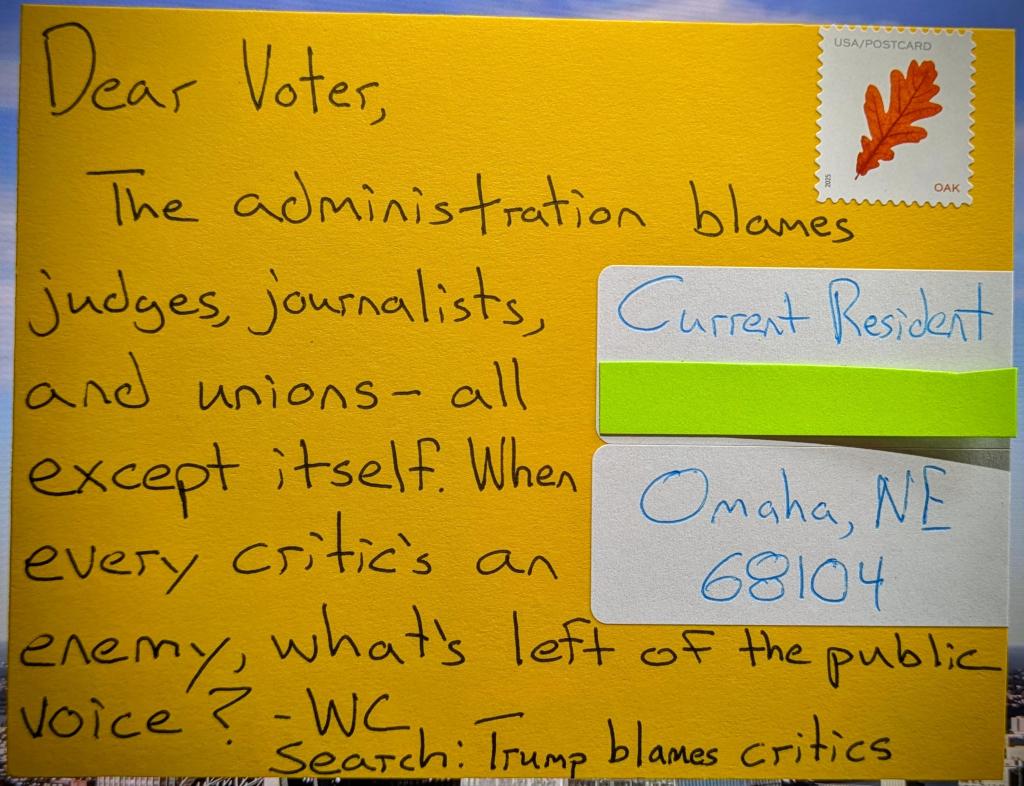 Dear Voter,
USA/POSTCARD
2025
OAK
The administration blames
judges, journalists,
and unions- all
except itself. When
every critic's an
enemy, what's left of the public
voice? -WC
Search: Trump blames critics
Current Resident
Omaha, NE
68104